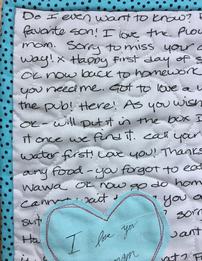 Do I even want to know?
favorite son! I love the
mom. Sorry to miss your
way! x Happy First day of
Ok now back to homework
you need me. Got to love a
the pub! Here! As you wish
Ok - will put it in the box I
it once we find it. Call your
water first! Love you! Thanks
any food - you forgot to
Wawa. Ok now go do hom
you a
sorr
want
I love you
mom